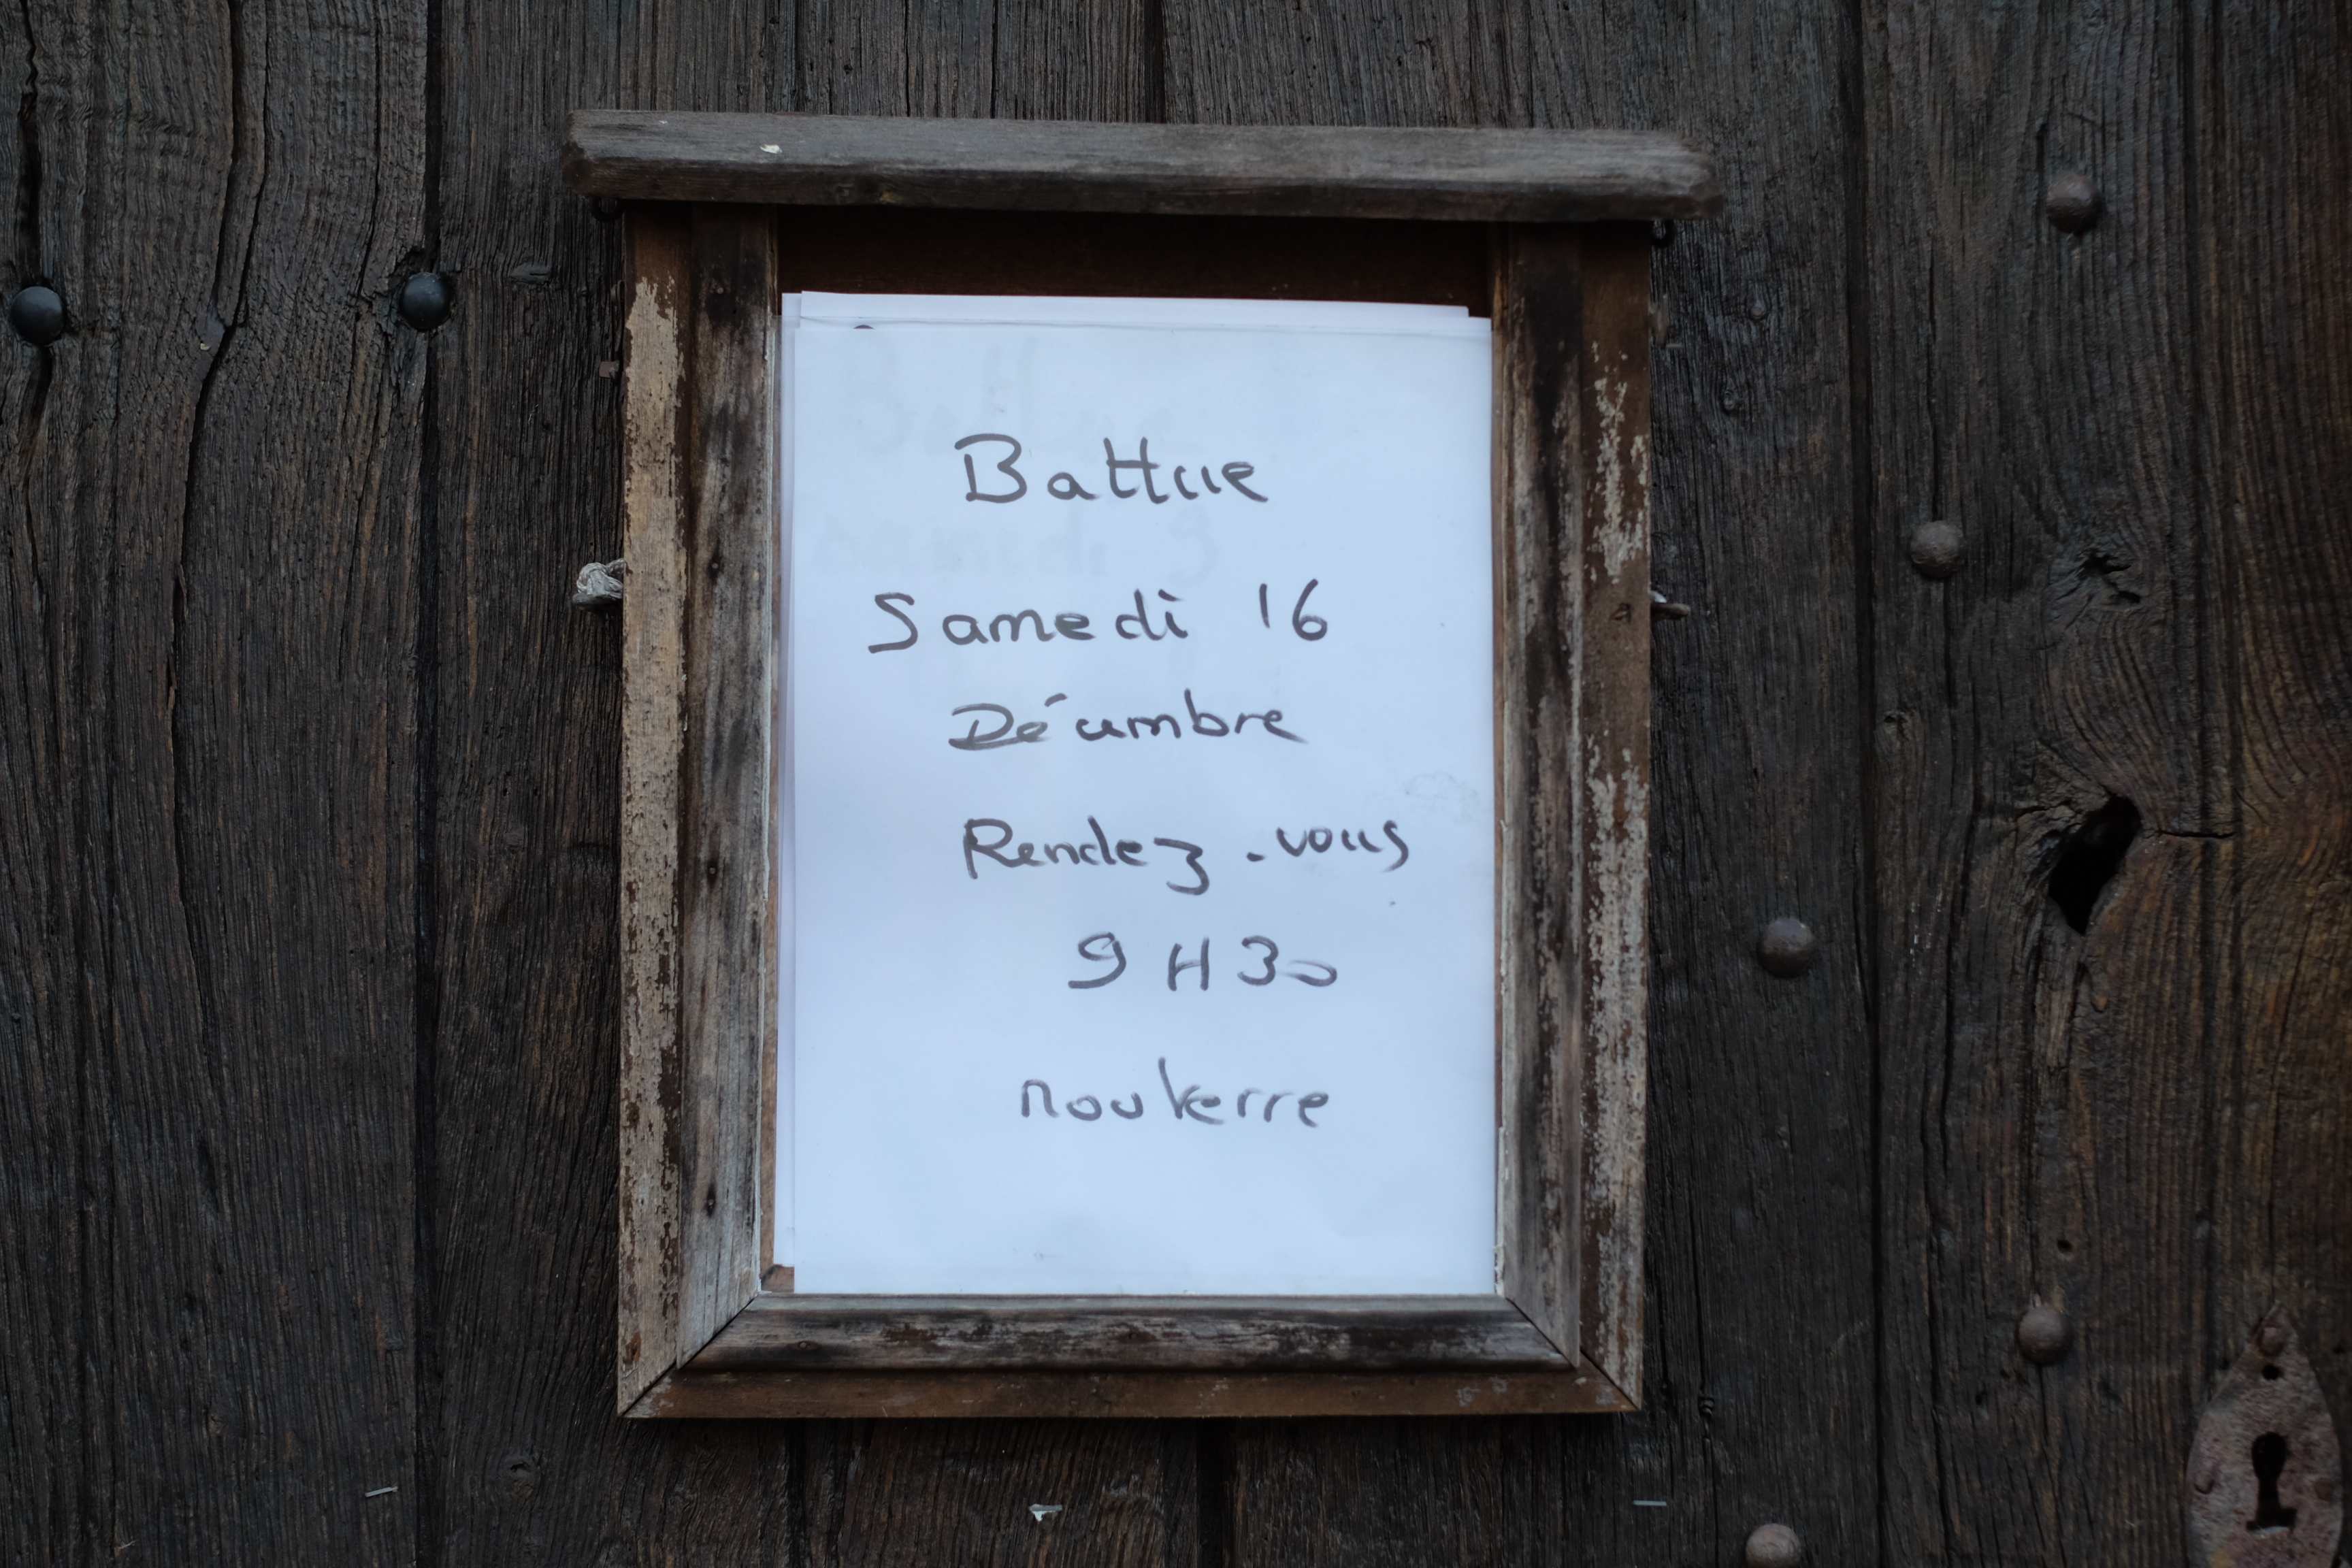 Battue
Samedi 16
Décembre
Rendez-vous
9H30
nouverre